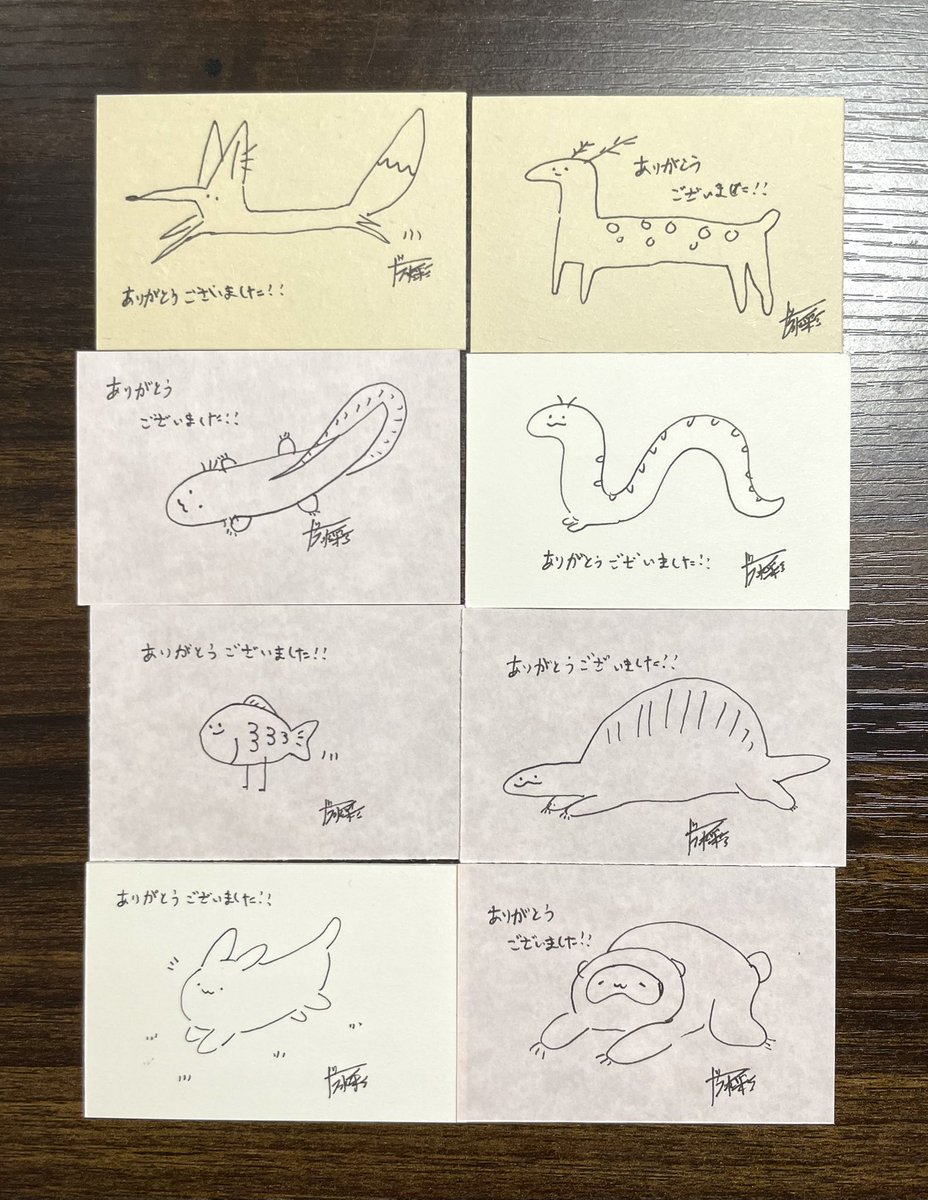 ありがとうございました!!
ありがとう
ございました!!
ありがとう
ございました!!
ありがとうございました!!
ありがとうございました!!
ありがとうございました!!
ありがとうございました!!
ありがとう
ございました!!